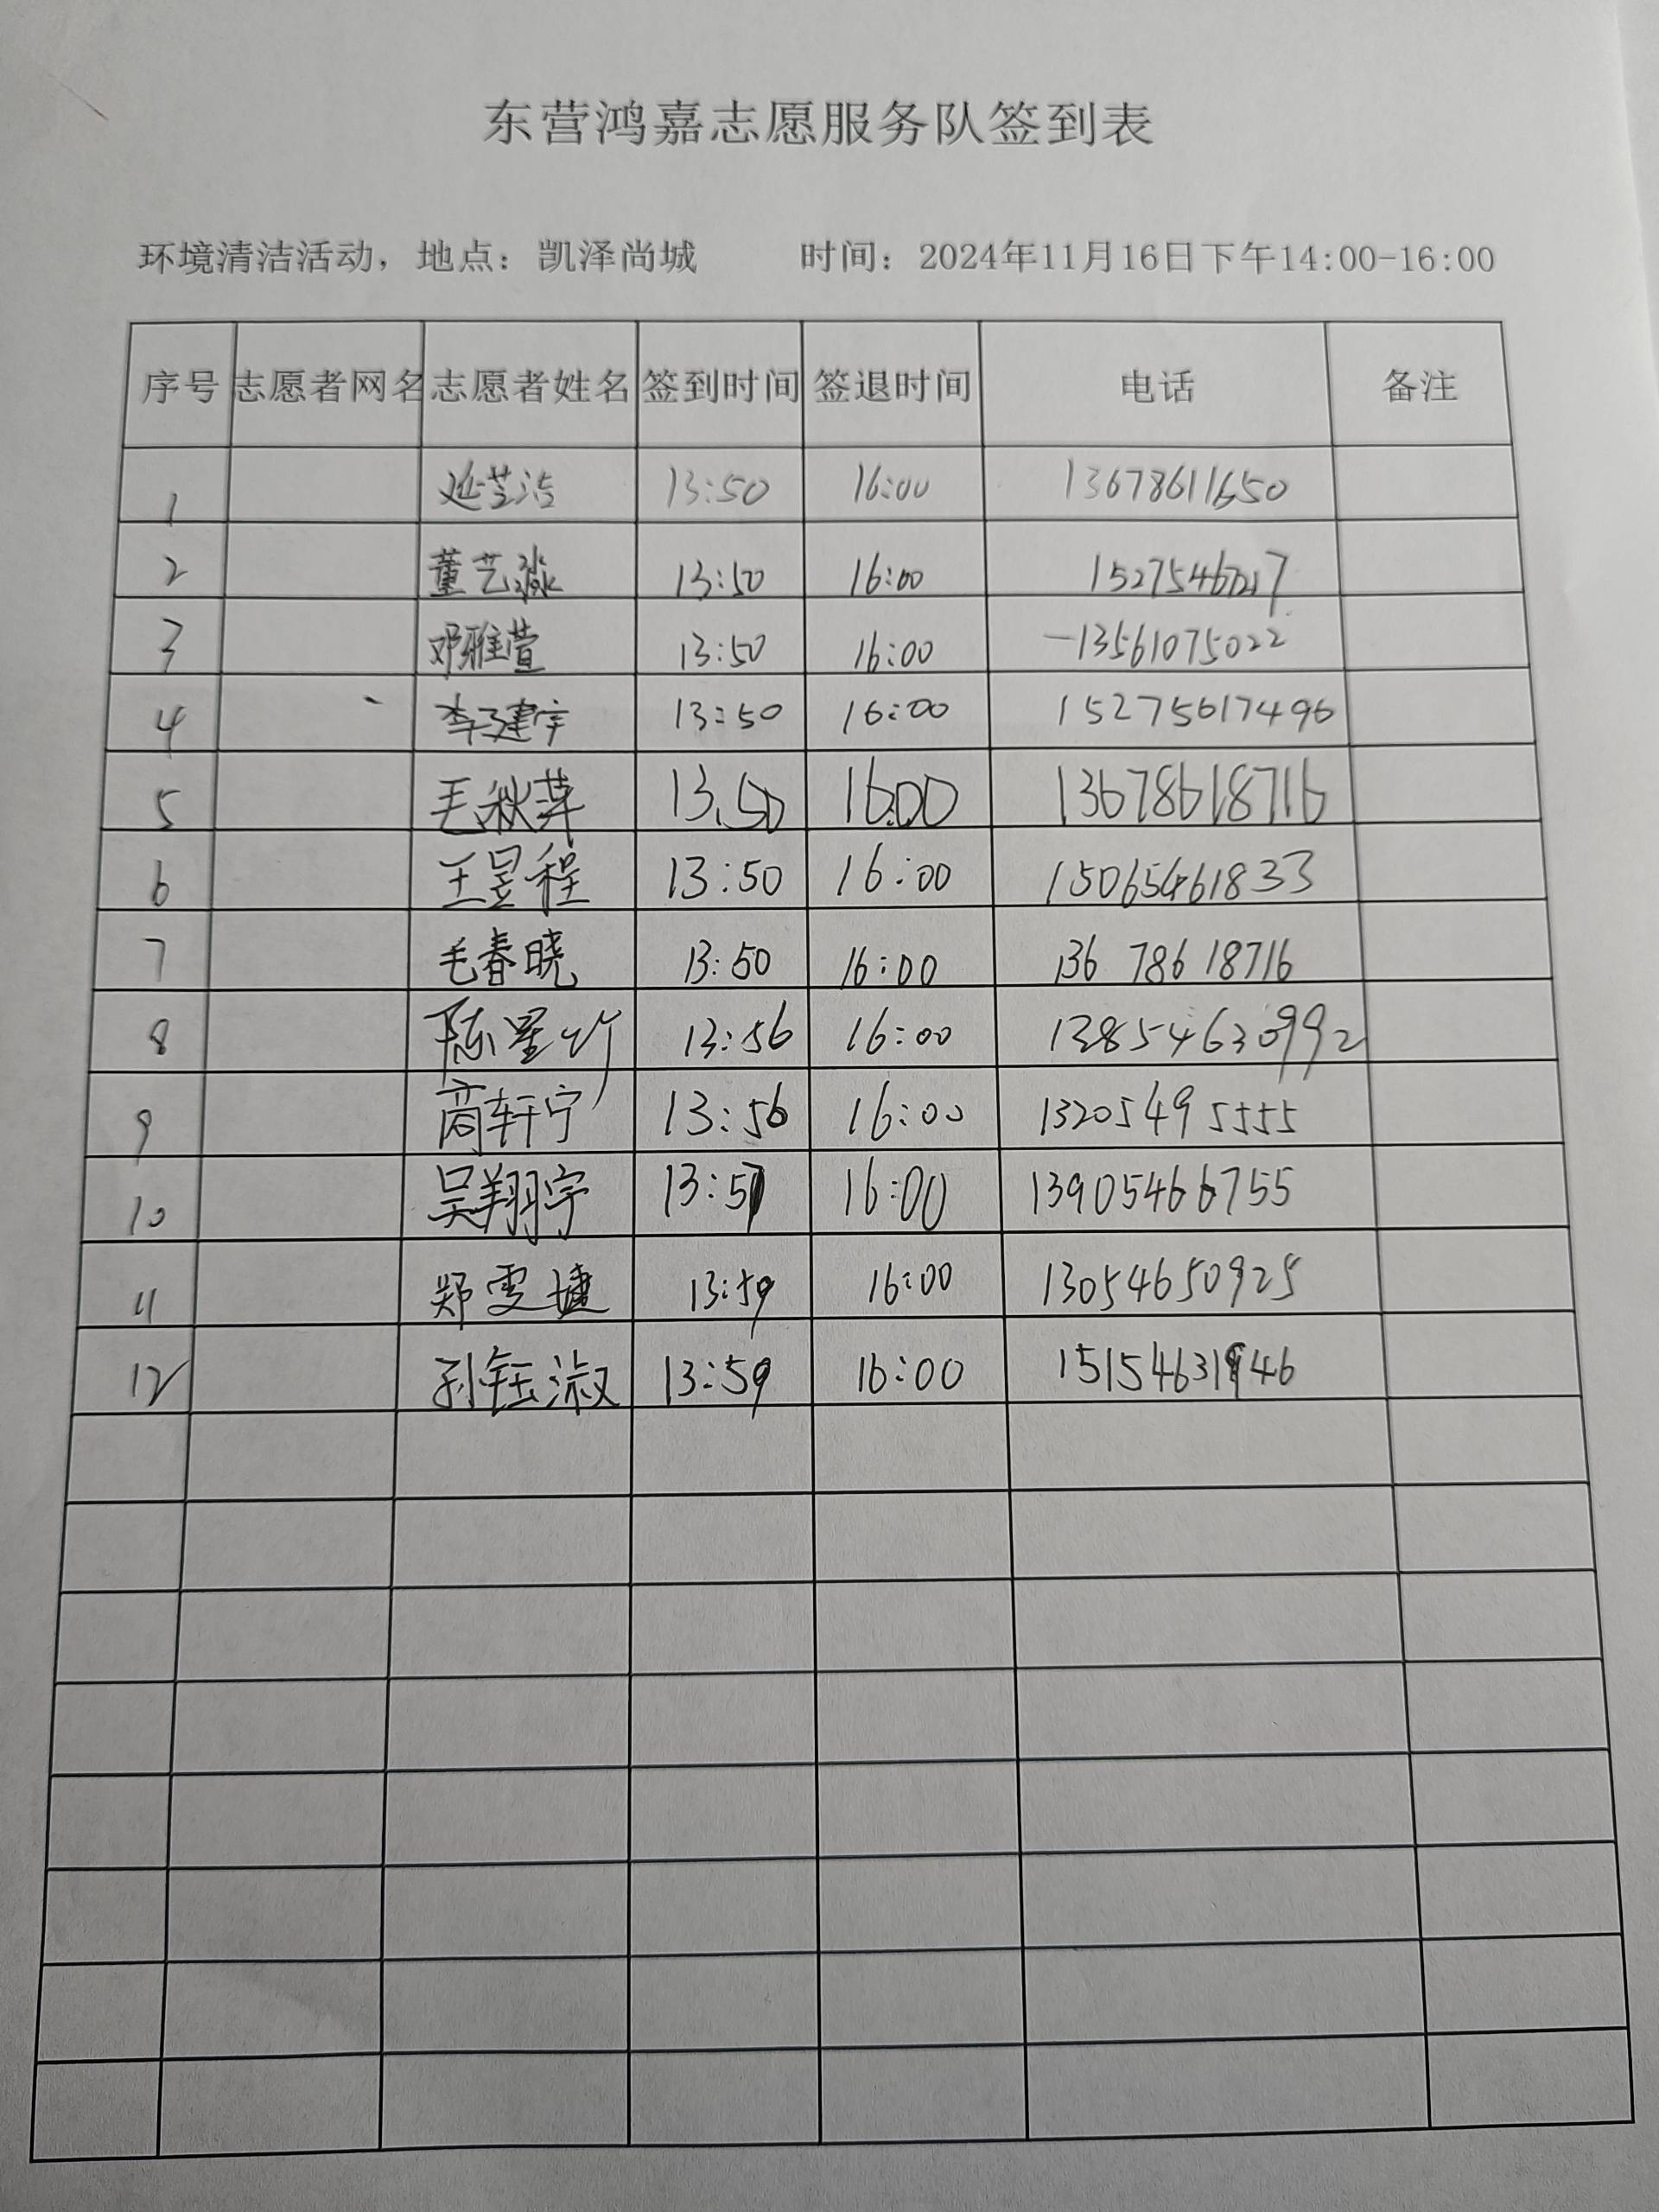 东营鸿嘉志愿服务队签到表
环境清洁活动，地点：凯泽尚城 时间：2024年11月16日下午14:00-16:00
序号 志愿者网名 志愿者姓名 签到时间 签退时间 电话 备注
1 延芝洁 13:50 16:00 13678611650
2 董艺淼 13:50 16:00
3 邓雅萱 13:50 16:00 -13561075022
4 李建宇 13:50 16:00 15275617496
5 毛秋萍 13.50 16:00 13678618716
6 王昱程 13:50 16:00 15065461833
7 毛春晓 13:50 16:00 136 786 18716
8 陈星竹 13:56 16:00 13854630992
9 商轩宁 13:56 16:00 13205495555
10 吴翔宇 13:57 16:00 13905466755
11 郑雯婕 13:59 16:00 13054650925
12 孙钰淑 13:59 16:00